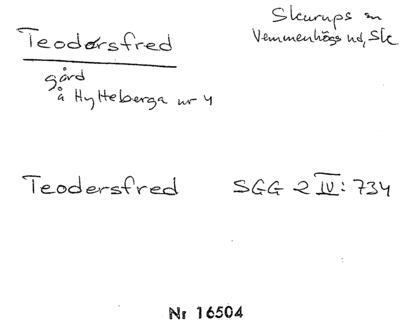 Teodorsfred
Skurups sn
Vemmenhögs hd, Sk
gård
å Hylteberga nr 4
Teodersfred SGG 2 IV: 734
Nr 16504